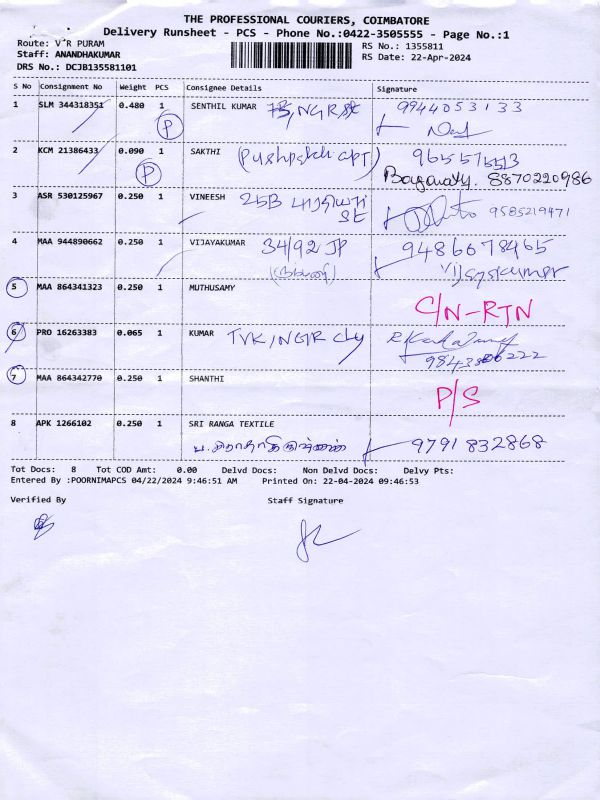 THE PROFESSIONAL COURIERS, COIMBATORE
Delivery Runsheet - PCS - Phone No.:0422-3505555 - Page No.:1
Route: V'R PURAM
Staff: ANANDHAKUMAR
DRS No.: DCJB135581101
RS No.: 1355811
RS Date: 22-Apr-2024
S No Consignment No Weight PCS Consignee Details Signature
1 SLM 344318351 0.480 1 SENTHIL KUMAR 7B, NGR St 9944053133
P
2 KCM 21386433 0.090 1 SAKTHI (Pushpakh APT)
P
8870220986
3 ASR 530125967 0.250 1 VINEESH 25B பாரதியார் St 9585219471
4 MAA 944890662 0.250 1 VIJAYAKUMAR 34/92 JP 9486678465
Vijayakumar
5 MAA 864341323 0.250 1 MUTHUSAMY C/N-RTN
6 PRO 16263383 0.065 1 KUMAR TVK, NGR
7 MAA 864342770 0.250 1 SHANTHI P/S
8 APK 1266102 0.250 1 SRI RANGA TEXTILE
9791832868
Tot Docs: 8 Tot COD Amt: 0.00 Delvd Docs: Non Delvd Docs: Delvy Pts:
Entered By :POORNIMAPCS 04/22/2024 9:46:51 AM Printed On: 22-04-2024 09:46:53
Verified By Staff Signature